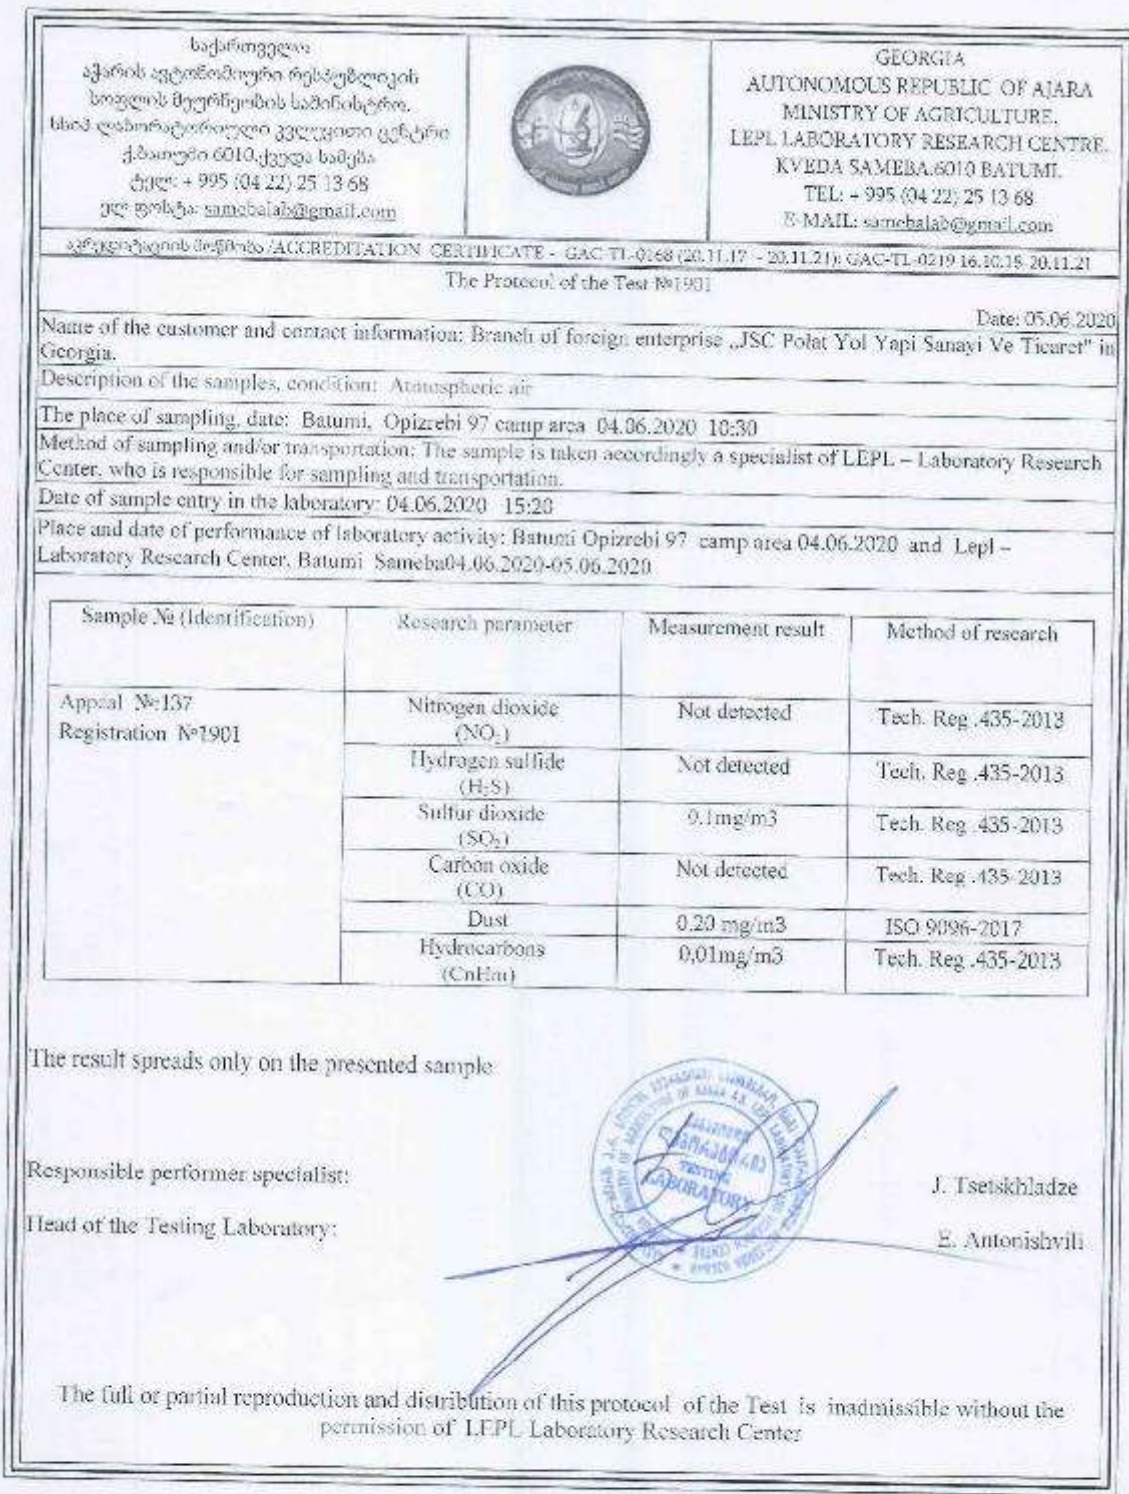 საქართველო
აჭარის ავტონომიური რესპუბლიკის
სოფლის მეურნეობის სამინისტრო.
სსიპ ლაბორატორიული კვლევითი ცენტრი
ქ.ბათუმი 6010.ქვედა სამება
ტელ: + 995 (04 22) 25 13 68
ელ ფოსტა: samebalab@gmail.com
GEORGIA
AUTONOMOUS REPUBLIC OF AJARA
MINISTRY OF AGRICULTURE.
LEPL LABORATORY RESEARCH CENTRE.
KVEDA SAMEBA.6010 BATUMI.
TEL: + 995 (04 22) 25 13 68
E-MAIL: samebalab@gmail.com
აკრედიტაციის მოწმობა /ACCREDITATION CERTIFICATE - GAC-TL-0168 (20.11.17 - 20.11.21); GAC-TL-0219 16.10.18-20.11.21
The Protocol of the Test №1901
Date: 05.06.2020
Name of the customer and contact information: Branch of foreign enterprise „JSC Polat Yol Yapi Sanayi Ve Ticaret" in
Georgia.
Description of the samples, condition: Atmospheric air
The place of sampling, date: Batumi, Opizrebi 97 camp area 04.06.2020 10:30
Method of sampling and/or transportation: The sample is taken accordingly a specialist of LEPL – Laboratory Research
Center, who is responsible for sampling and transportation.
Date of sample entry in the laboratory: 04.06.2020 15:20
Place and date of performance of laboratory activity: Batumi Opizrebi 97 camp area 04.06.2020 and Lepl –
Laboratory Research Center, Batumi Sameba04.06.2020-05.06.2020
Sample № (Identification) Research parameter Measurement result Method of research
Appeal №:137
Registration №1901
Nitrogen dioxide
(NO₂) Not detected Tech. Reg .435-2013
Hydrogen sulfide
(H₂S) Not detected Tech. Reg .435-2013
Sulfur dioxide
(SO₂) 0.1mg/m3 Tech. Reg .435-2013
Carbon oxide
(CO) Not detected Tech. Reg .435-2013
Dust 0.20 mg/m3 ISO 9096-2017
Hydrocarbons
(CnHm) 0,01mg/m3 Tech. Reg .435-2013
The result spreads only on the presented sample
TESTING
LABORATORY
Responsible performer specialist: J. Tsetskhladze
Head of the Testing Laboratory: E. Antonishvili
The full or partial reproduction and distribution of this protocol of the Test is inadmissible without the
permission of LEPL Laboratory Research Center